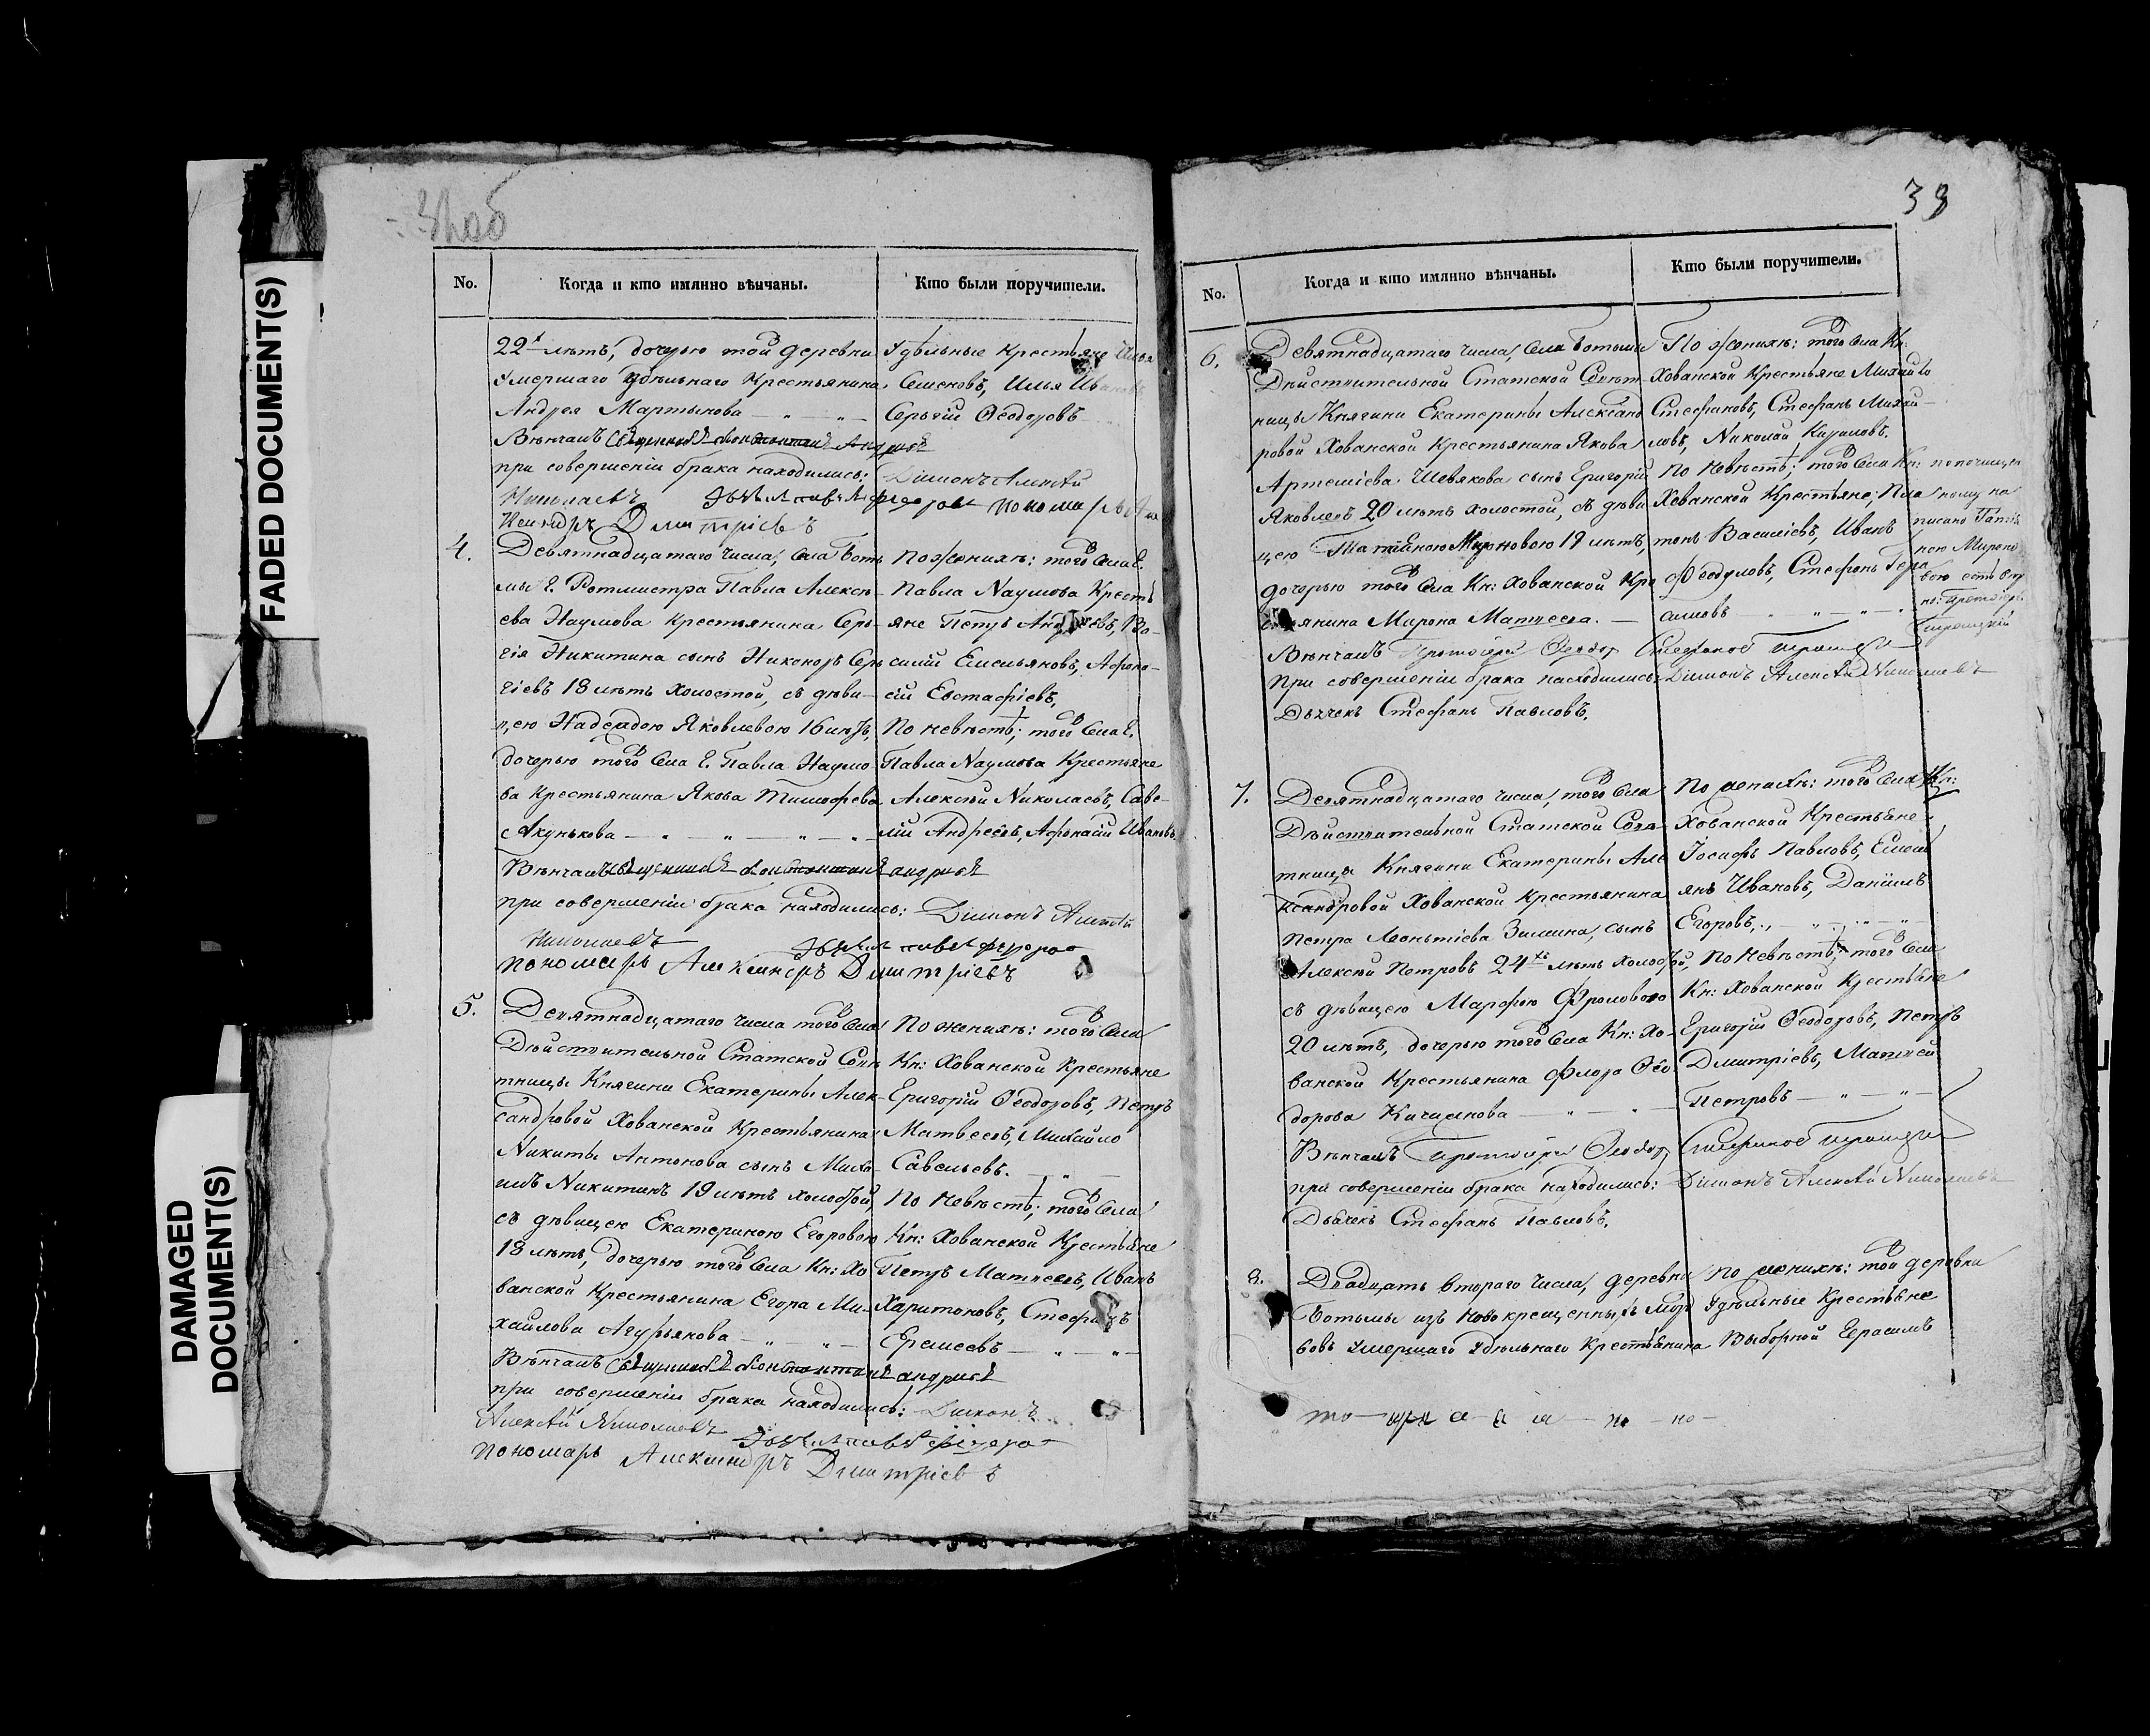 FADED DOCUMENT(S)
DAMAGED
DOCUMENT(S)
38
No. Когда и кто имянно вѣнчаны. Кто были поручители.
22х лѣтъ, дочерью той деревни
умершаго Удѣльнаго Крестьянина
Андрея Мартынова
Вѣнчалъ
при совершеніи брака находились: Діаконъ Алексѣй
Николаевъ
Дмитріевъ
Удѣльные Крестьяне
Семеновъ, Илья Ивановъ
Сергій Ѳеодоровъ
4.
Девятнадцатаго числа, села Боть
мы Г. Ротмистра Павла Алексѣ-
ева Наумова Крестьянина Сер-
гія Никитина сынъ Никоноръ Сер
гіевъ 18 лѣтъ холостой, съ дѣви-
цею Надеждою Яковлевою 16 лѣтъ,
дочерью того села Г. Павла Наумо-
ва Крестьянина Якова Тимофеева
Акунькова
Вѣнчалъ
при совершеніи брака находились: Діаконъ Алексѣй
Николаевъ
пономарь Александръ Дмитріевъ
По женихѣ: того села Г.
Павла Наумова Кресть
яне Петръ Андреевъ, Ва-
силій Емельяновъ, Афана-
сій Евстафіевъ,
По невѣстѣ; того села Г.
Павла Наумова Крестьяне
Алексѣй Николаевъ, Саве-
лій Андреевъ, Афонасій Ивановъ
5.
Девятнадцатаго числа того села
Дѣйствительной Статской Совѣ
тницы Княгини Екатерины Алек-
сандровой Хованской Крестьянина
Никиты Антонова сынъ Миха-
илъ Никитинъ 19 лѣтъ холостой,
съ дѣвицею Екатериною Егоровою
18 лѣтъ, дочерью того села Кн: Хо
ванской Крестьянина Егора Ми-
хайлова Агурьянова
Вѣнчалъ
при совершеніи брака находились: Діаконъ
Алексѣй Николаевъ
пономарь Александръ Дмитріевъ
По женихѣ: того села
Кн: Хованской Крестьяне
Григорій Ѳеодоровъ, Петръ
Матвеевъ, Михайло
Савельевъ.
По невѣстѣ; того села
Кн: Хованской Крестьяне
Петръ Матвеевъ, Иванъ
Харитоновъ, Стефанъ
Еремеевъ
No. Когда и кто имянно вѣнчаны. Кто были поручители.
6.
Девятнадцатаго числа, села Ботьмы
Дѣйствительной Статской Совѣт-
ницы Княгини Екатерины Александ
ровой Хованской Крестьянина Якова
Артеміева Шевякова сынъ Григорій
Яковлевъ 20 лѣтъ холостой, съ дѣви
цею Татіаною Мироновою 19 лѣтъ,
дочерью того села Кн: Хованской Кре
стьянина Мирона Матвеева.
Вѣнчалъ Протоіерей Ѳеодоръ
При совершеніи брака находились: Діаконъ Алексѣй Николаевъ
Дьячекъ Стефанъ Павловъ.
По женихѣ: того села Кн:
Хованской Крестьяне Михайло
Стефановъ, Стефанъ Михай-
ловъ, Николай Кириловъ.
По невѣстѣ; того села Кн:
Хованской Крестьяне; Пла
тонъ Васильевъ, Иванъ
Ѳеодуловъ, Стефанъ Гера
симовъ
писано Татія
ною Мироно
вою
7.
Девятнадцатаго числа, того села
Дѣйствительной Статской Совѣ-
тницы Княгини Екатерины Але
ксандровой Хованской Крестьянина
Петра Леонтіева Зимина, сынъ
Алексѣй Петровъ 24хъ лѣтъ холостой,
съ дѣвицею Марфою Фроловою
20 лѣтъ, дочерью того села Кн: Хо-
ванской Крестьянина Флора Ѳео
дорова Кичимнова
Вѣнчалъ Протоіерей Ѳеодоръ
при совершеніи брака находились: Діаконъ Алексѣй Николаевъ
Дьячекъ Стефанъ Павловъ.
По женихѣ: того села Кн:
Хованской Крестьяне
Іосифъ Павловъ, Емель
янъ Ивановъ, Даніилъ
Егоровъ.
По невѣстѣ; того села
Кн: Хованской Крестьяне
Григорій Ѳеодоровъ, Петръ
Дмитріевъ, Матвей
Петровъ
8.
Двадцать втораго числа, деревни
Ботьмы изъ новокрещенныхъ Морд
вовъ умершаго Удѣльнаго Крестьянина
По женихѣ: той деревни
Удѣльные Крестьяне
Выборной Герасимъ